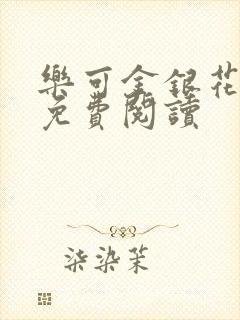 樂可金銀花
免費閱讀
柒染茉